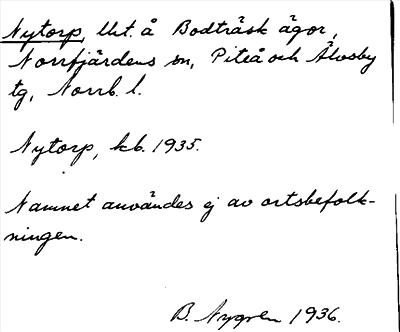 Nytorp, lht. å Bodträsk ägor,
Norrfjärdens sn, Piteå och Älvsby
tg, Norrb. l.
Nytorp, kb. 1935.
Namnet användes ej av ortsbefolk-
ningen.
B. Nygren 1936.